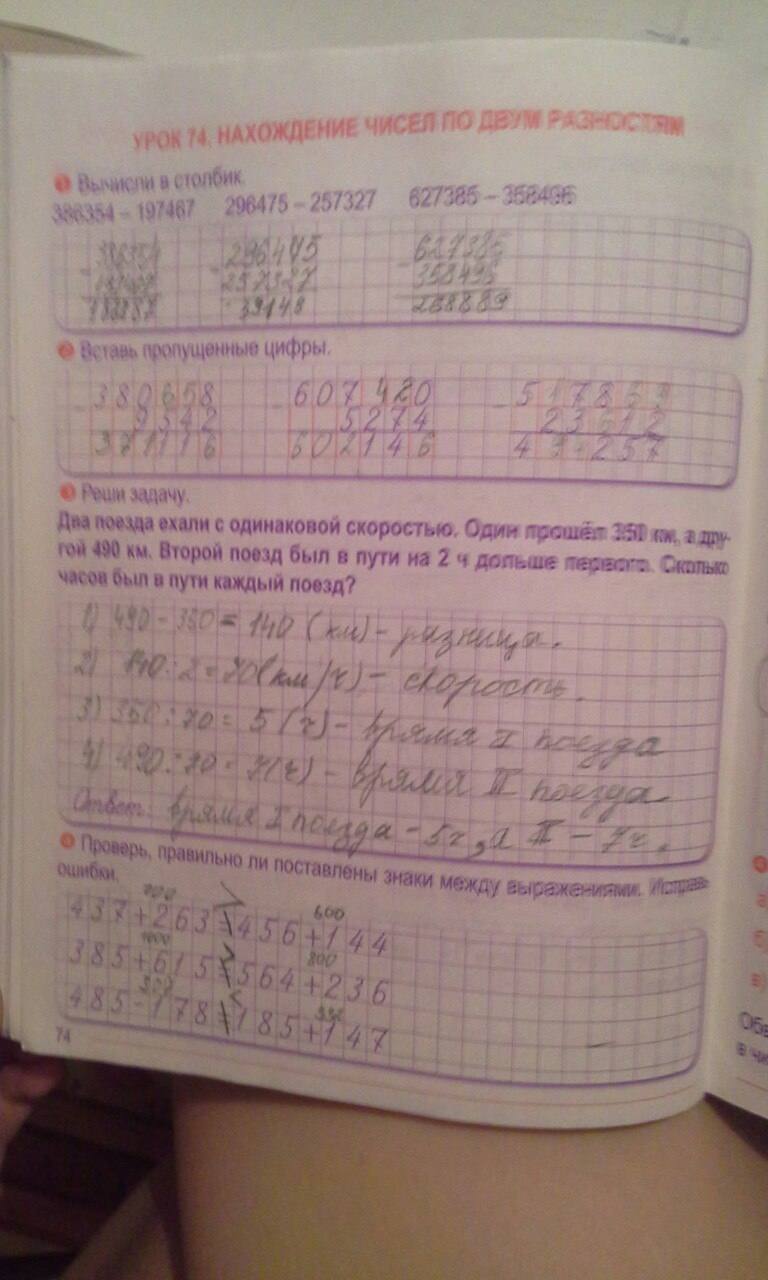 УРОК 74. НАХОЖДЕНИЕ ЧИСЕЛ ПО ДВУМ РАЗНОСТЯМ
1 Вычисли в столбик.
386354 – 197467 296475 – 257327 627385 – 358496
- 296475 - 627385
257327 358496
39148 268889
2 Вставь пропущенные цифры.
- 380658 - 607420 - 517869
9542 5274 23612
371116 602146 257
3 Реши задачу.
Два поезда ехали с одинаковой скоростью. Один прошёл 350 км, а дру-
гой 490 км. Второй поезд был в пути на 2 ч дольше первого. Сколько
часов был в пути каждый поезд?
1) 490 - 350 = 140 (км) - разница.
2) 140 : 2 = 70 (км/ч) - скорость.
3) 350 : 70 = 5 (ч) - врямя I поезда
4) 490 : 70 = 7 (ч) - врямя II поезда.
Ответ: врямя I поезда - 5ч, а II - 7ч.
4 Проверь, правильно ли поставлены знаки между выражениями. Исправь
ошибки.
700 > 600
437+263=456+144
1000 > 800
385+615=564+236
<
485-178=185+147
74